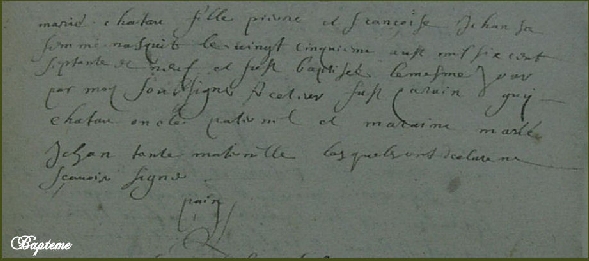 marie chatau fille pierre et francoise Jehan sa
femme nasquit le vingt cinquieme aust mil six cent
septante et neuf et fust baptisee le mesme jour
par moy soubsigne fust parain guy
chatau oncle paternel et maraine marie
Jehan tante maternelle lesquels ont declare ne
scavoir signe
Bapteme